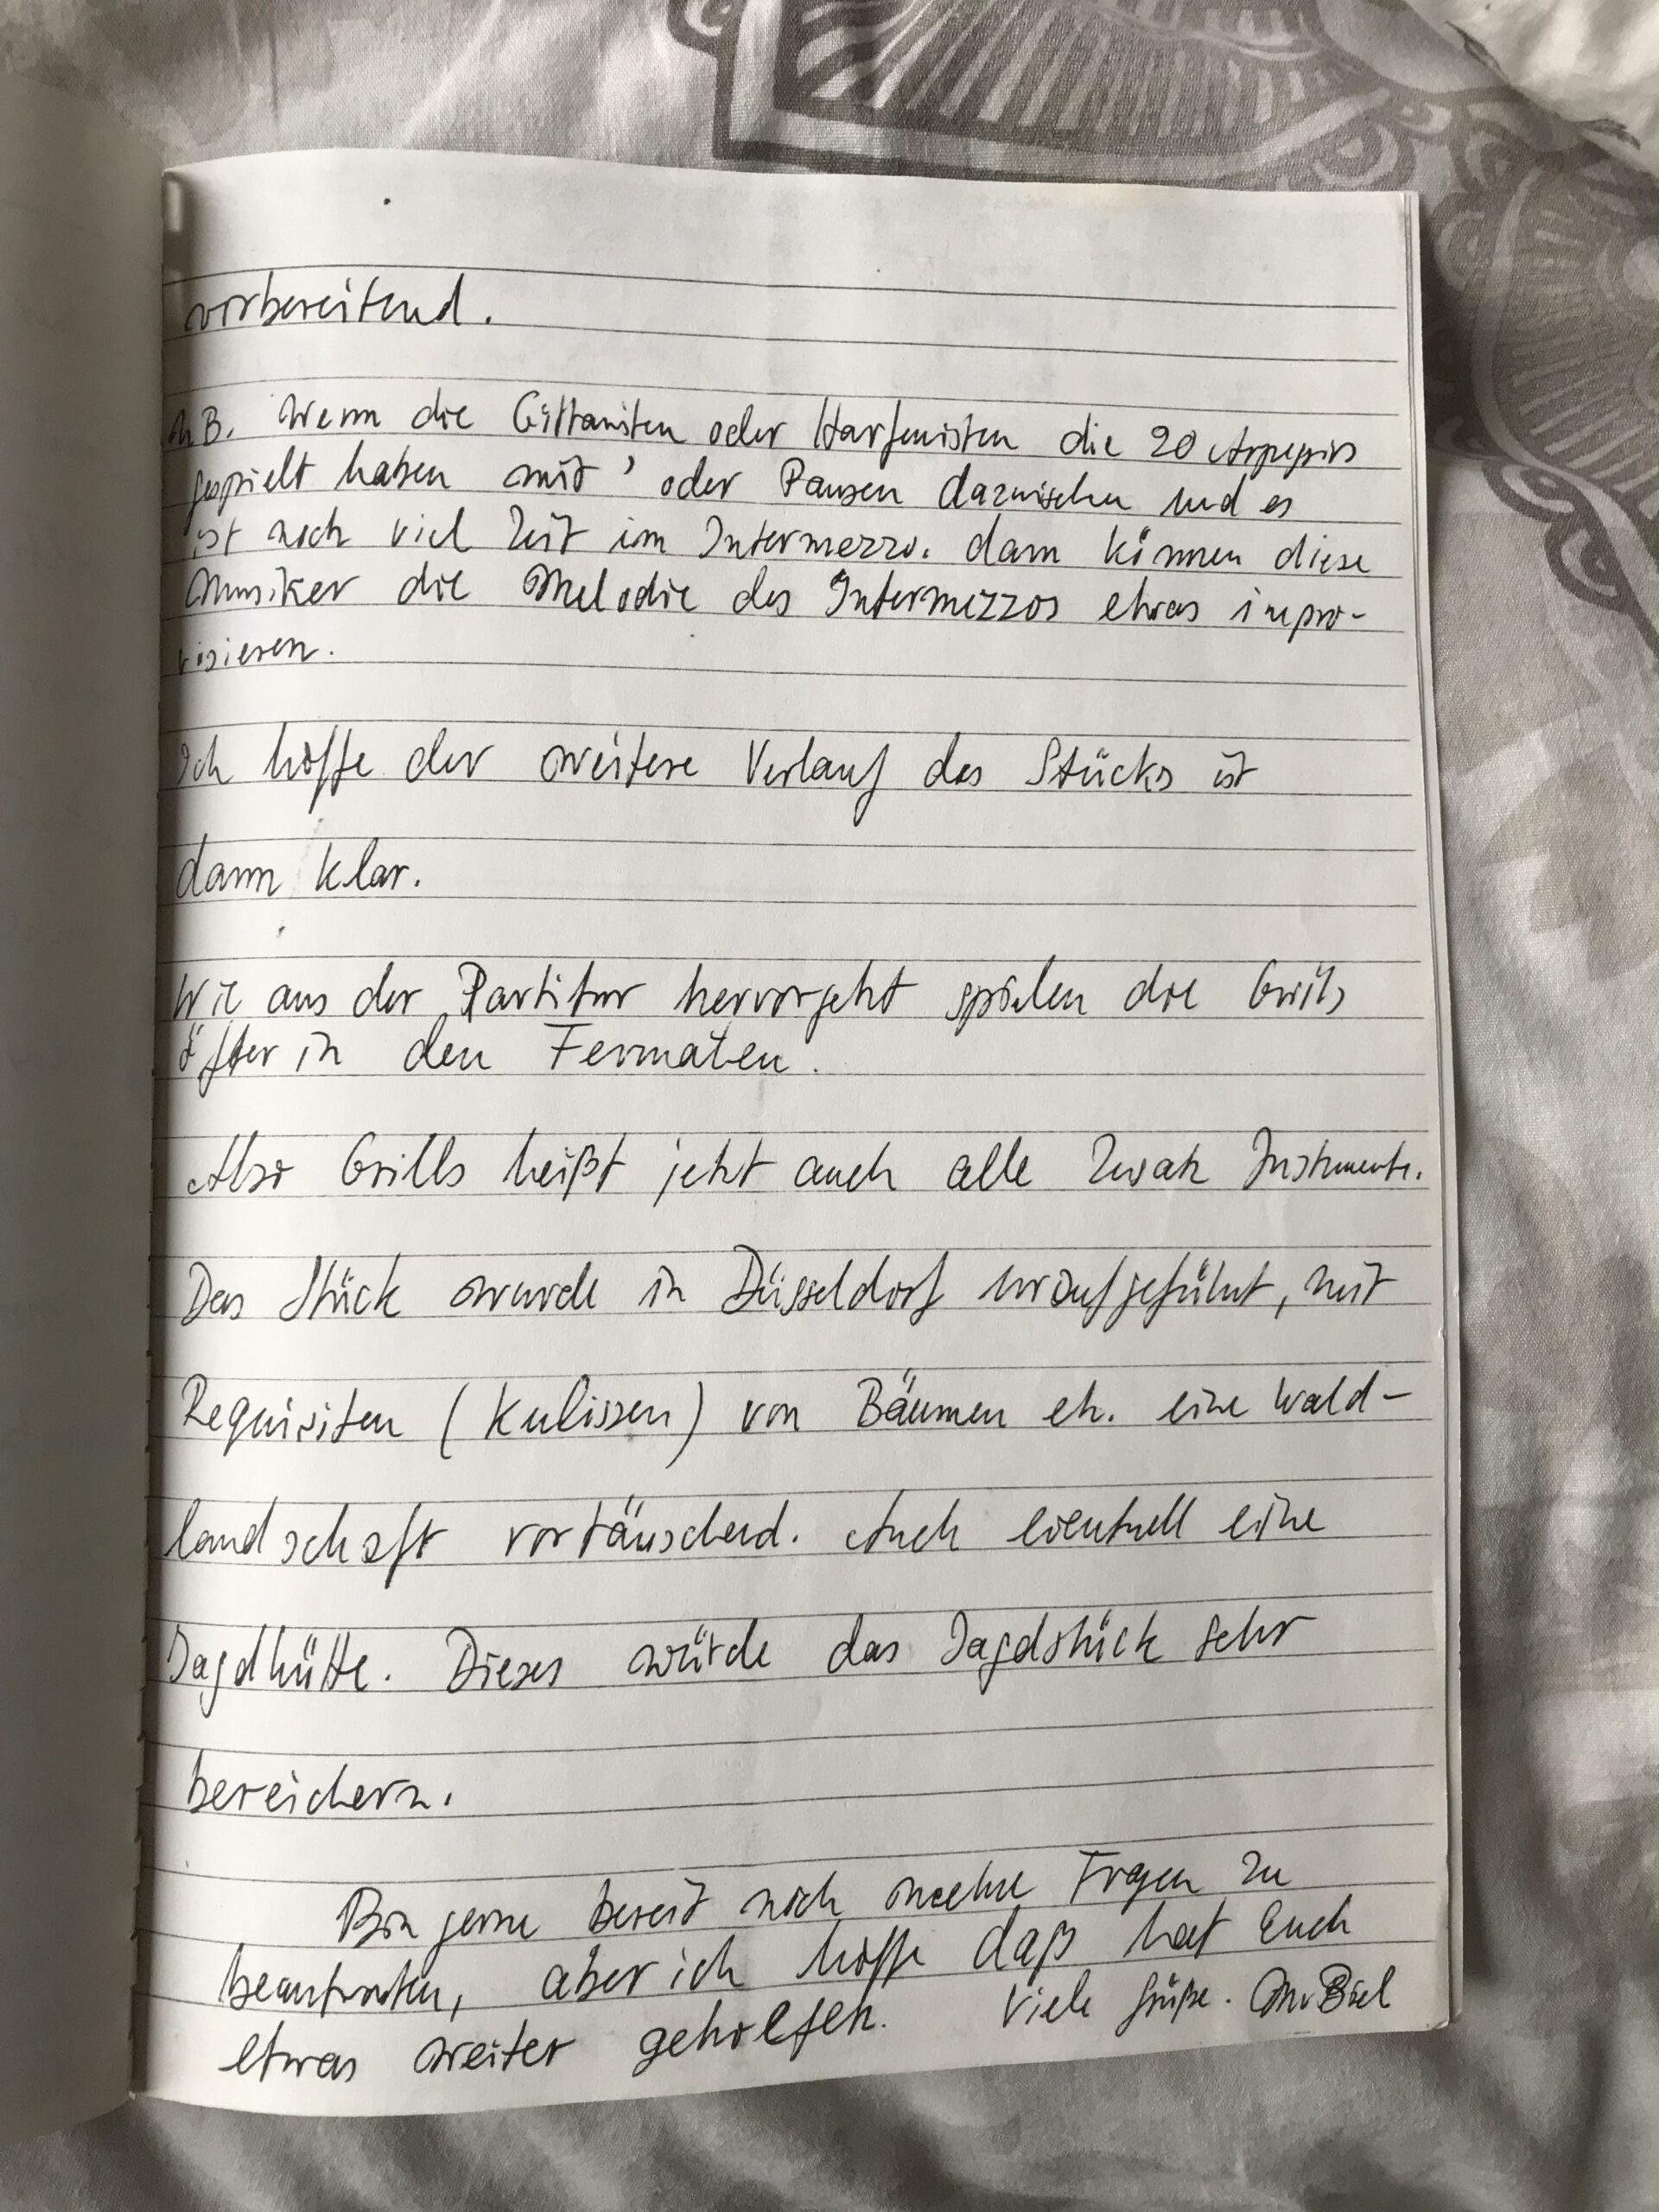 vorbereitend.
NB. Wenn die Gittaristen oder Harfenisten die 20 Arpegios
gespielt haben mit ' oder Pausen dazwischen und es
ist noch viel Zeit im Intermezzo. dann können diese
Musiker die Melodie des Intermezzos etwas impro-
visieren.
Ich hoffe der weitere Verlauf des Stücks ist
dann klar.
Wie aus der Partitur hervorgeht spielen die Grills
öfter in den Fermaten.
Also Grills heißt jetzt auch alle Zwak Instrumente.
Das Stück wurde in Düsseldorf uraufgeführt, mit
Requisiten (Kulissen) von Bäumen etz. eine Wald-
landschaft vortäuschend. Auch eventuell eine
Jagdhütte. Dieses würde das Jagdstück sehr
bereichern.
Bin gerne bereit noch mehr Fragen zu
beantworten, aber ich hoffe daß hat Euch
etwas weiter geholfen. Viele Grüße.